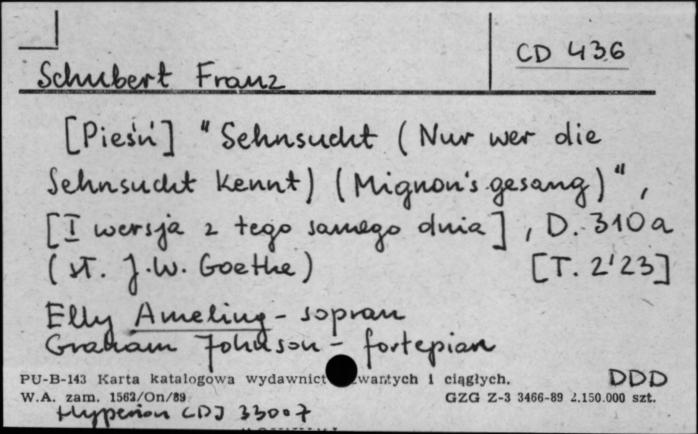 CD 436
Schubert Franz
[Pieśń] "Sehnsucht (Nur wer die
Sehnsucht kennt) (Mignon's gesang)",
[I wersja z tego samego dnia], D. 310a
(sł. J.W. Goethe) [T. 2'23]
Elly Ameling - sopran
Graham Johnson - fortepian
PU-B-143 Karta katalogowa wydawnict zwartych i ciągłych. DDD
W.A. zam. 1563/On/89 GZG Z-3 3466-89 2.150.000 szt.
Hyperion CDJ 33007